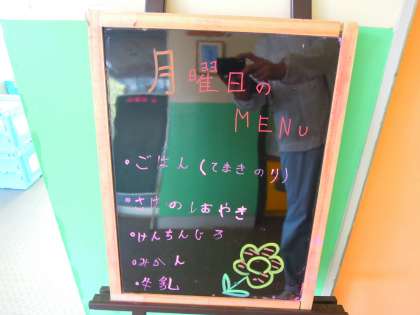 月曜日の
MENU
•ごはん(てまきのり)
•さけのしおやき
•けんちんじる
•みかん
•牛乳